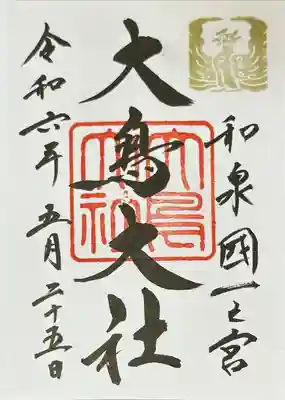 和泉國一之宮
大鳥大社
令和六年 五月 二十五日